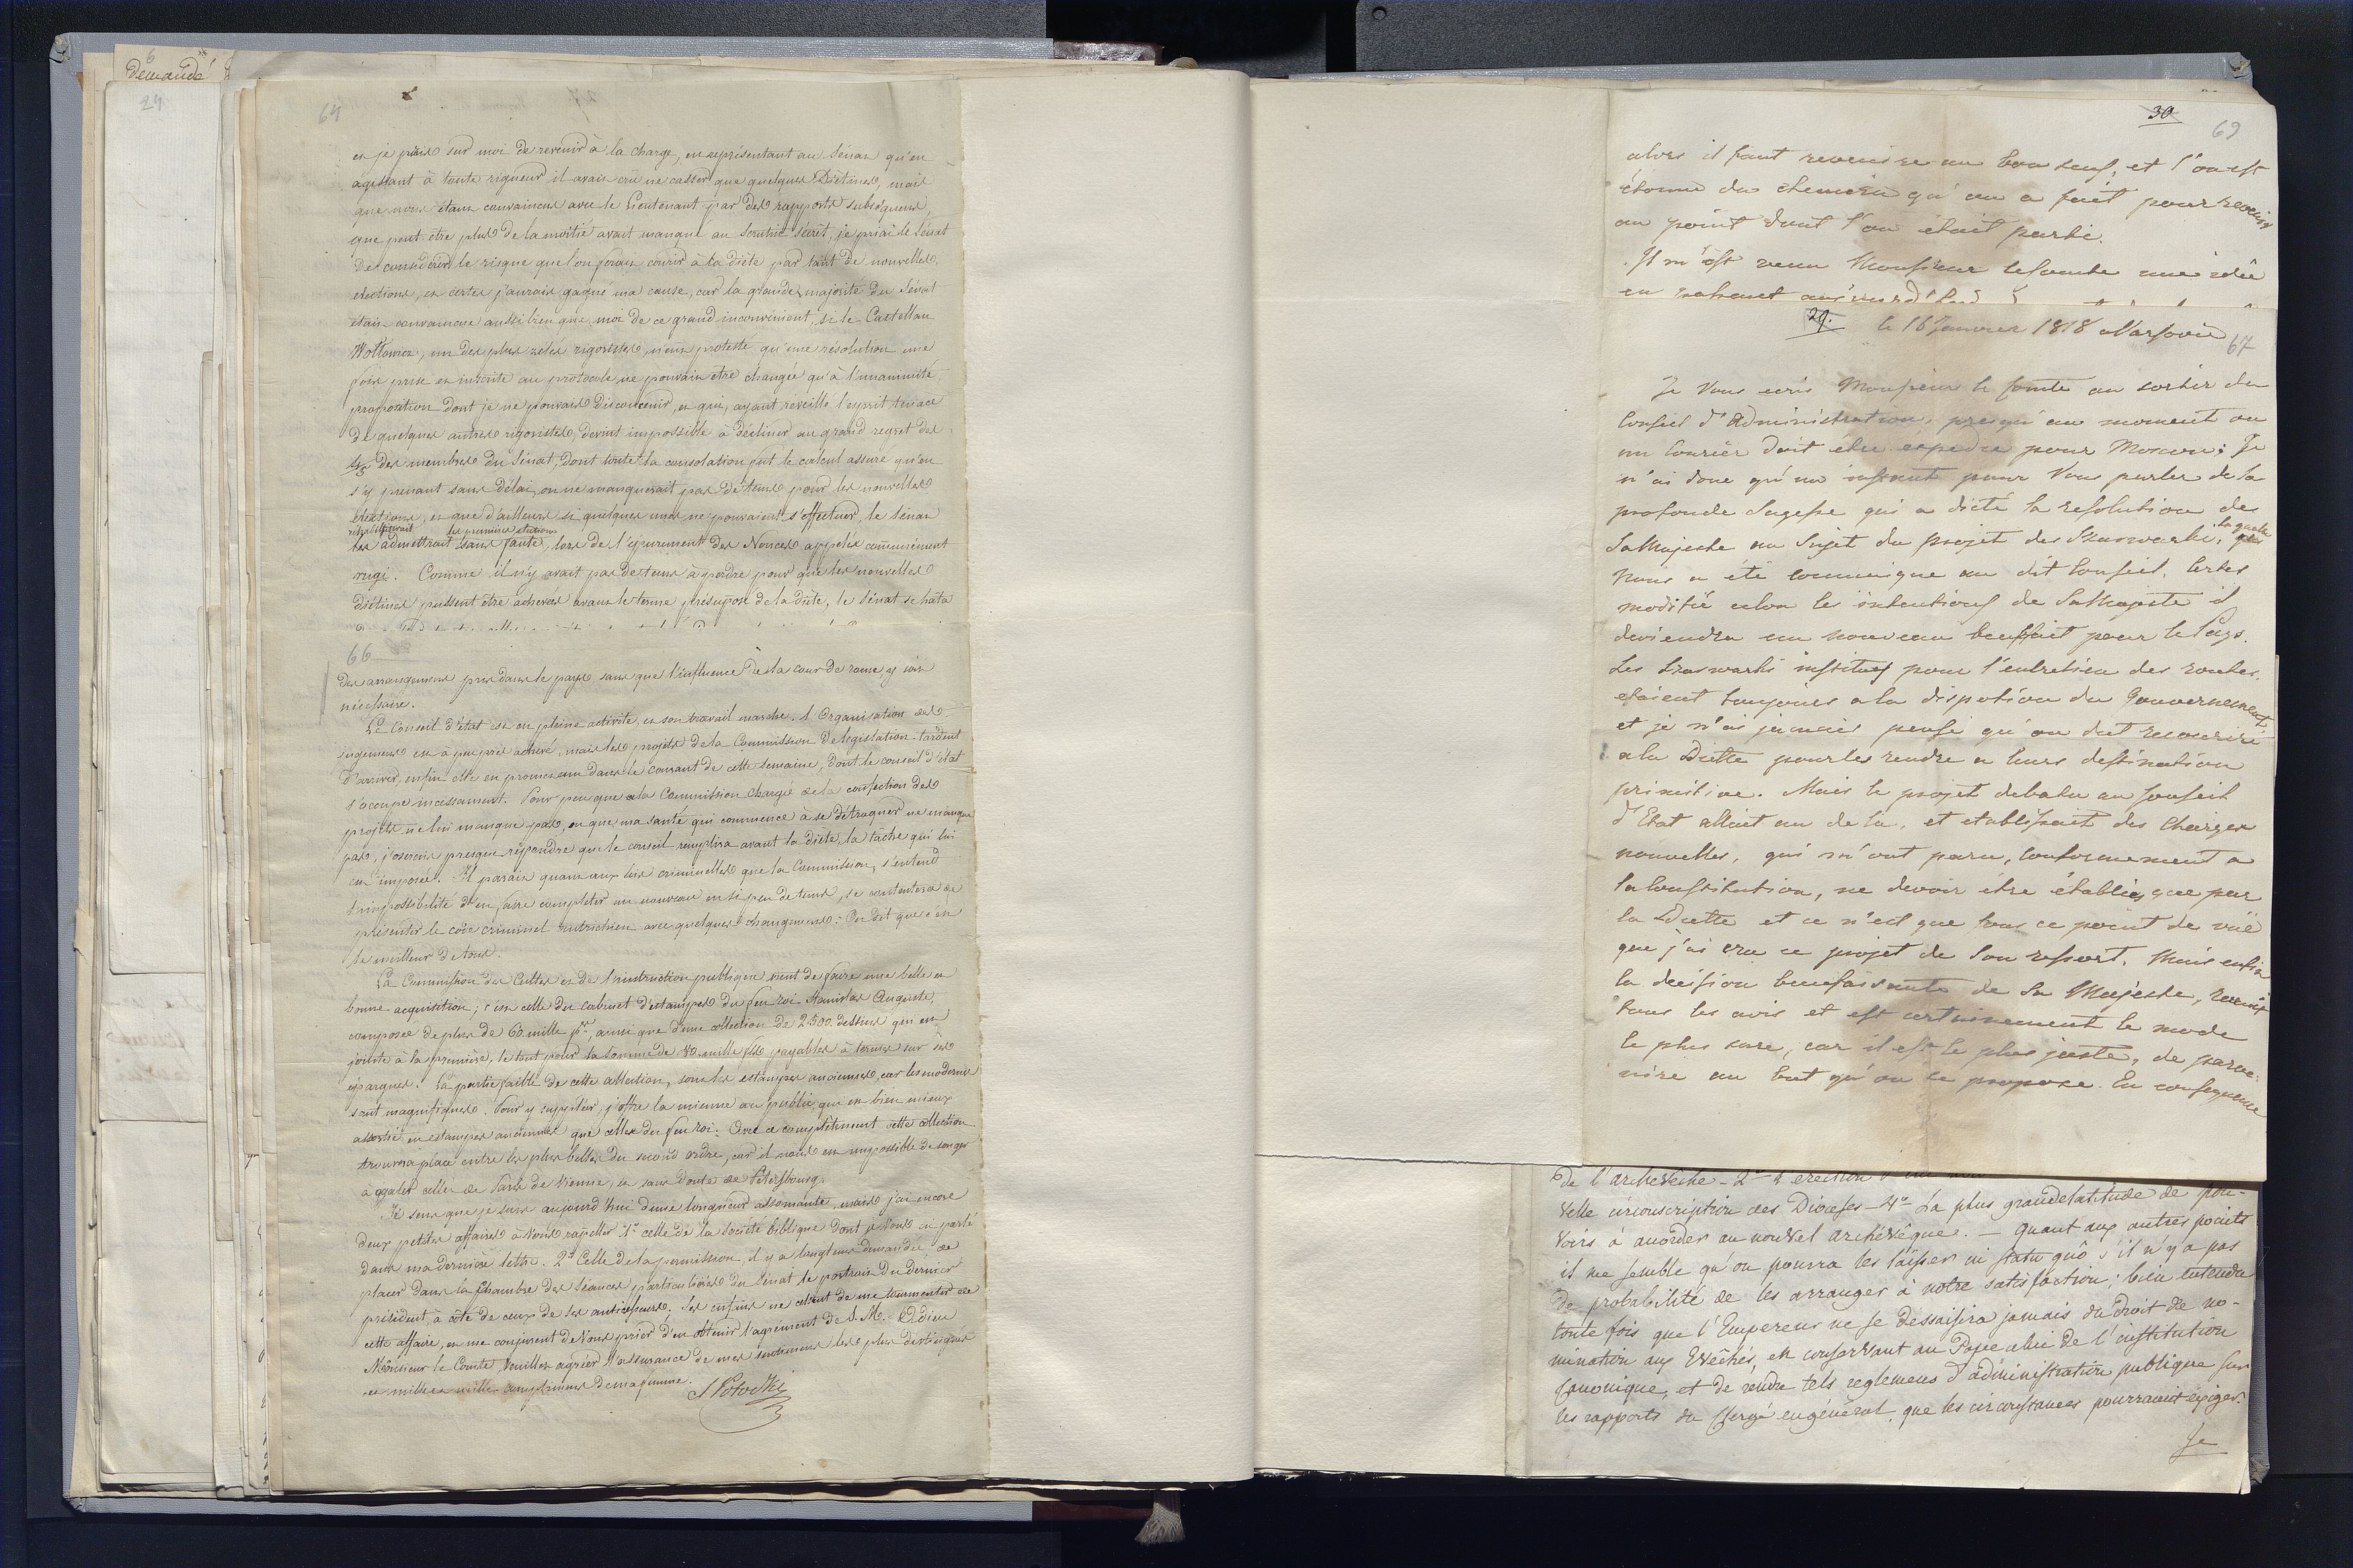 Demandé
24
64
et je priai sur moi de revenir à la charge, en représentant au Sénat qu'en
agissant à toute rigueur il avait crû ne casser que quelques Diètines, mais
que nous étant convaincus avec le Lieutenant par des rapports subséquens,
que peut être plus de la moitié avait manqué au Scrutin secret, je priai le Sénat
de considérer le risque que l'on pouvait courir à la diète par tant de nouvelles
élections, et certes j'aurais gagné ma cause, car la grande majorité du Sénat
étais convaincue aussi bien que moi de ce grand inconvénient, si le Castellan
un des plus zélés rigoristes, n'eut protesté qu'une résolution une
fois prise et inscrite au protocole ne pouvait être changée qu'à l'unanimité,
proposition dont je ne pouvais disconvenir, et qui, ayant réveillé l'esprit tenace
de quelques autres rigoristes, devint impossible à décliner au grand regret des
4/5 des membres du Sénat, dont toute la consolation fut le calcul assuré qu'en
s'y prenant sans délai, on ne manquerait pas de tems pour les nouvelles
élections, et que d'ailleurs si quelques unes ne pouvaient s'effectuer, le Sénat
les premières élections
les admettrait sans faute, lors de l'épurement des Nonces appelés communément
rugi. Comme il n'y avait pas de tems à perdre pour que les nouvelles
diètines pussent être achevées avant le terme présuposé de la diète, le Sénat se hâta
66
des arrangemens pris dans le pays sans que l'influence de la cour de rome y soit
nécessaire.
Le Conseil d'état est en pleine activité, et son travail marche. L'Organisation des
jugemens est à peu près achevé, mais les projets de la Commission de législation tardent
d'arriver, enfin elle en promet un dans le courant de cette semaine, dont le conseil d'état
s'occupe incessament. Pour peu que la Commission chargée de la confection des
projets ne lui manque pas, et que ma santé qui commence à se détraquer ne manque
pas, j'oserais presque répondre que le conseil remplira avant la diète, la tâche qui lui
est imposée. Il parait quant aux loix criminelles que la Commission, s'entend
l'impossibilité d'en faire compléter un nouveau en si peu de tems, se contentera de
présenter le code criminel autrichien avec quelques changemens. On dit que c'est
le meilleur de tous.
La Commission des Cultes et de l'instruction publique vient de faire une belle et
bonne acquisition; c'est celle du cabinet d'estampes du feu roi Stanislas Auguste,
composée de plus de 60 mille p., ainsi que d'une collection de 2500 dessins qui est
jointe à la première, le tout pour la somme de mille payables à termes sur ses
épargnes. La partie faible de cette collection, sont les estampes anciennes, car les modernes
sont magnifiques. Pour y suppléer j'offre la mienne au public, qui est bien mieux
assortie en estampes anciennes que celles du feu roi. Avec ce complètement cette collection
trouvera place entre les plus belles du second ordre, car il nous est impossible de songer
à égaler celles de Paris de Vienne, et sans doute de Petersbourg.
Je sens que je suis aujourd'hui d'une longueur assomante, mais j'ai encore
deux petites affaires à Vous rapeller 1° celle de la société biblique dont je Vous ai parlé
dans ma dernière lettre. 2° Celle de la permission, il y a longtems demandée, de
placer dans la Chambre des Séances particulières du Sénat le portrait du dernier
président, à côté de ceux de ses antécesseurs; ses enfans ne cessent de me tourmenter de
cette affaire, et me conjurent de Vous prier d'en obtenir l'agrément de S. M. Adieu
Monsieur le Comte Veuillez agréer l'assurance de mes sentimens les plus distingués
et mille et mille complimens de ma femme.
S Potocki
30
69
alors il faut revenire au bon sens, et l'on est
étonné du chemin qu'on a fait pour revenir
au point dont l'on était parti.
Il m'est venu Monsieur le Comte une idée
en
29.
le 16 Janvier 1818 Varsovie
67
Je Vous ecris Monsieur le Comte au sortir du
Conseil d'Administration, presqu'au moment ou
un Courier doit être expedie pour Moscou; Je
n'ai donc qu'un instant pour Vous parler de la
profonde Sagesse qui a dicté la resolution de
Sa Majeste au Sujet du projet des Szarwarki, laquelle
nous a été communique au dit Conseil. Certes
modifié selon les intentions de Sa Majeste il
deviendra un nouveau bienfait pour le Pays.
Les Szarwarki institues pour l'entretien des routes
etoient toujours a la dispotion du Gouvernement
et je n'ai jamais pensé qu'on dut recourire
a la Diette pour les rendre a leurs destination
primitive. Mais le projet debatu au Conseil
d'Etat allait au de la, et etablissait des Charges
nouvelles, qui m'ont paru, conformement a
la Constitution, ne devoir être établies que par
la Diette et ce n'est que sous ce point de vüe
que j'ai cru ce projet de son ressort. Mais enfin
la decision bienfaisante de Sa Majeste, reunit
tous les avis et est certainement le mode
le plus sure, car il est le plus juste, de parve-
nire au but qu'on se propose. En consequence
De l'archevêché - 2° L'erection
velle circonscription des Diocèses - 4° La plus grande latitude de pou-
voirs à accorder au nouvel archévêque. - Quant aux autres points
il me semble qu'on pourra les laisser in statu quô s'il n'y a pas
de probabilité de les arranger à notre satisfaction; bien entendu
toute fois que l'Empereur ne se dessaisira jamais du droit de no-
mination aux Evêchés, en conservant au Pape celui de l'institution
canonique, et de rendre tels reglemens d'administration publique sur
les rapports du Clergé en général que les circonstances pourraient exiger.
Je